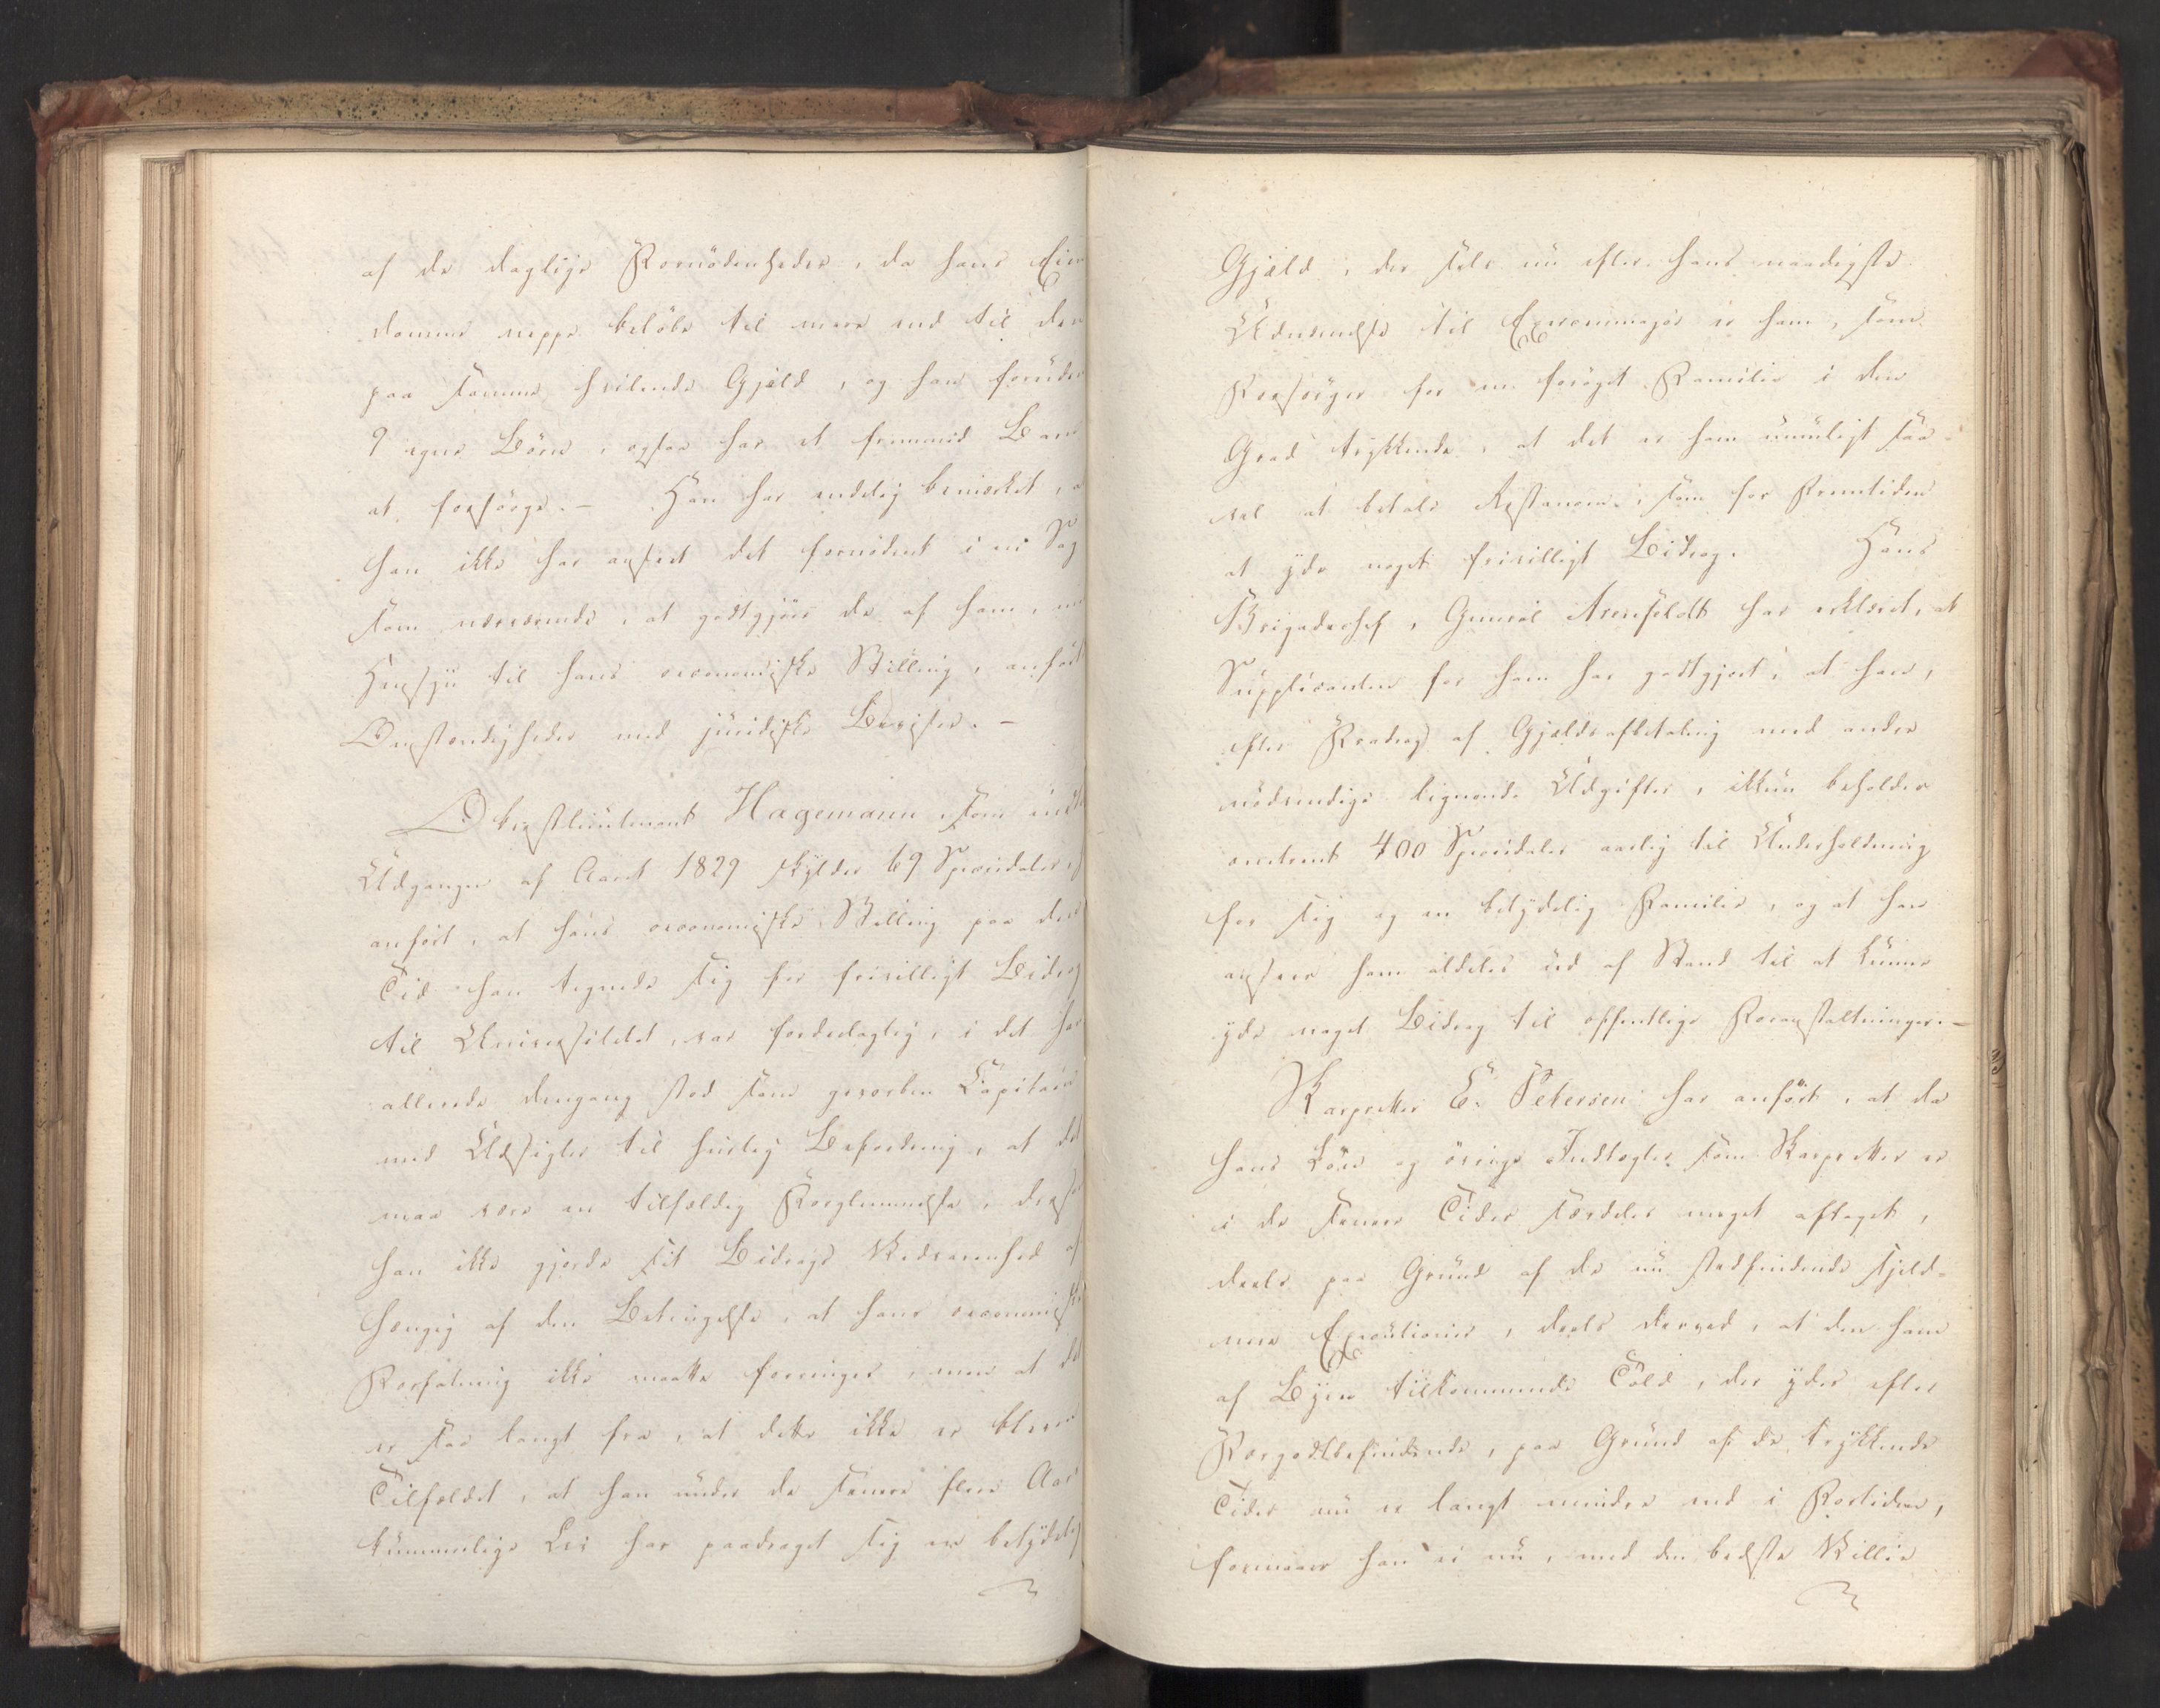 af de daglige Fornödenheder, da hans Eien
domme neppe belöbe til mere end til den
paa samme hvilende Gjæld, og han foruden
9 egne Börn, ogsaa har et fremmed Barn
at forsörge. – Han har endelig bemærket, a
han ikke har anseet det fornödent i en Sag
som nærværende, at godtgjöre de af ham, m
Hensyn til hans oeconomiske Stilling, anfört
Omstændigheder med juridiske Beviser. –
Oberstlieutenant Hagemann, som ved
Udgangen af Aaret 1829 skylder 69 Speciedaler,
anfört, at hans oeconomiske Stilling paa den
Tid han tegnede sig for frivilligt Bidrag
til Universitetet, var fordeelagtig, i det han
allerede dengang stod som geworben Capitain
med Udsigter til hurtig Befordring, at det
maa være en tilfældig Forglemmelse, derfor
han ikke gjorde sit Bidrags Vedvarenhed af
hængig af den Betingelse, at hans oeconomiske
Forfatning ikke maatte forringes, men at det
er saa langt fra, at dette ikke er bleven
Tilfældet, at han under de senere flere Aars
kummerlige Leie har paadraget sig en betydelig
Gjæld, der selv nu efter hans naadigste
Udnævnelse til Exercermajor er ham, som
Forsörger for en foröget Familie i den
Grad trykkende, at det er ham umuligt saa
vel at betale Restancen, som for Fremtiden
at yde noget frivilligt Bidrag. Hans
Brigadechef, General Arenfeldt har erklæret, at
Supplicanten for ham har godtgjort, at han,
efter Fradrag af Gjælds afbetaling med andre
nödvendige lignende Udgifter, ikkun beholder
omtrent 400 Speciedaler aarlig til Underholdning
for sig og en betydelig Familie, og at han
anseer ham aldeles ud af Stand til at kunne
yde noget Bidrag til offentlige Foranstaltninger. –
Skarpretter E. Petersen har anfört, at da
hans Lön og övrige Indtægter som Skarpretter er
i de senere Tider særdeles meget aftaget,
deels paa Grund af de nu stedfindende sjeld-
nere Executioner, deels derved, at den ham
af Byen tilkommende Told, der ydes efter
Forgodtbefindende, paa Grund af de trykkende
Tider nu er langt mindre end i Fortiden,
formaaer han ei nu, med den bedste Villie